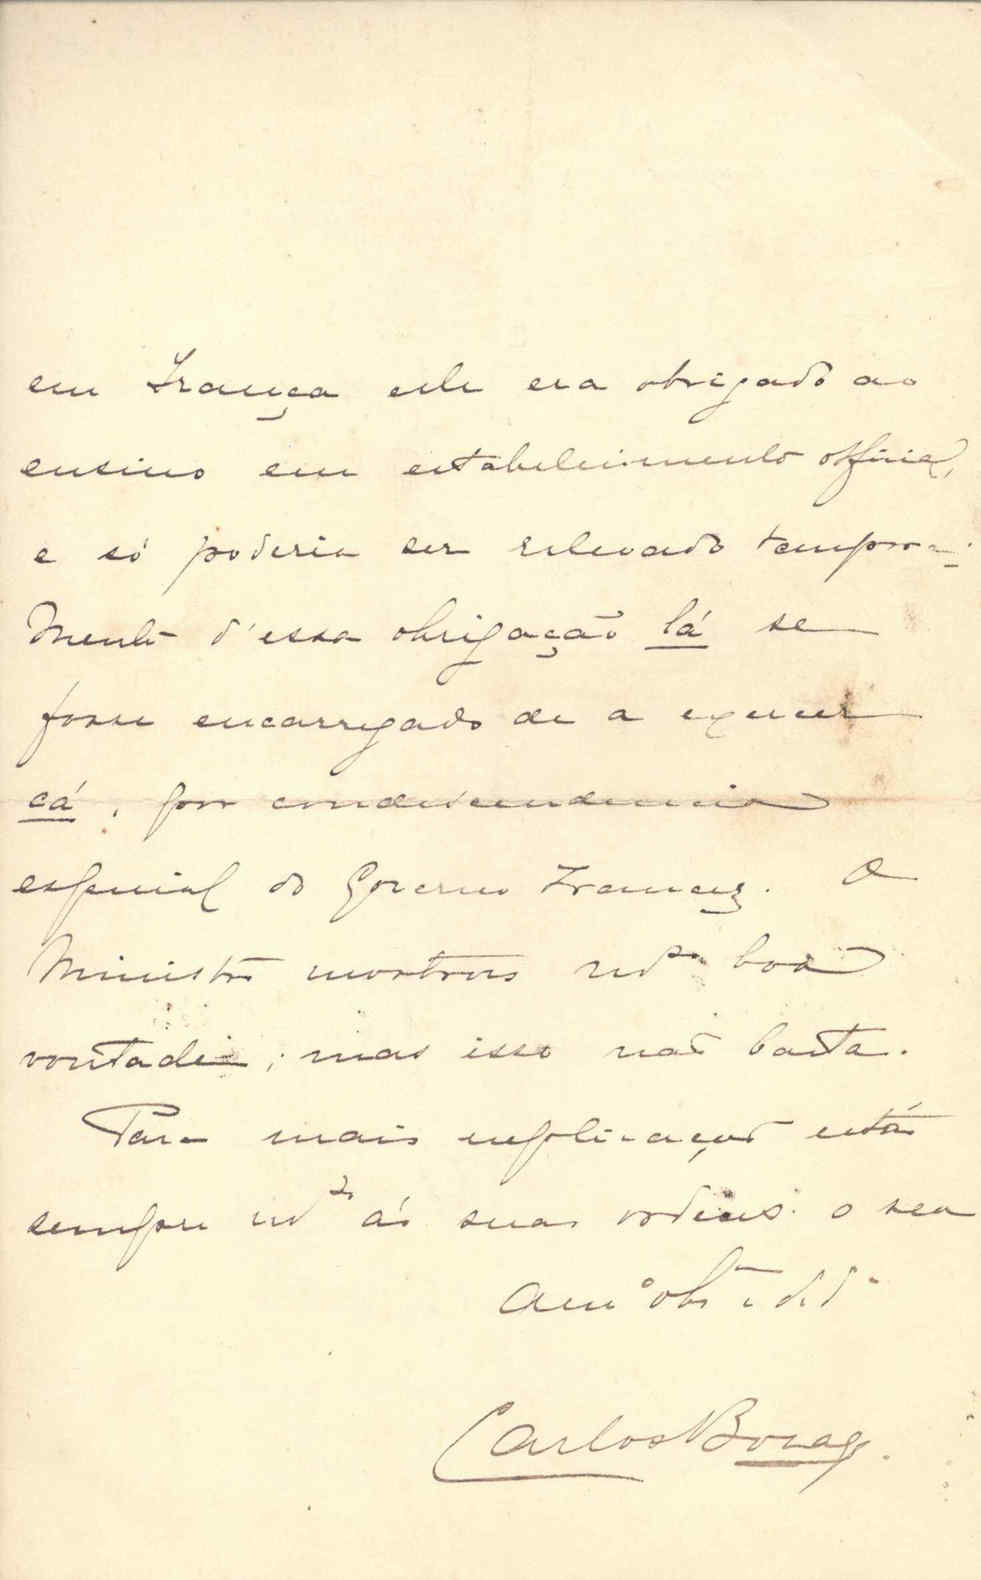 em França elle era obrigado ao
ensino em estabelecimento official,
e só poderia ser relevado tempora-
mente d'essa obrigação lá se
fosse encarregado de a exercer
cá, por condescendencia
especial do Governo Francez. O
Ministro mostrou boa
vontade; mas isso não basta.
Para mais explicações está
sempre ás suas ordens o seu
Am.º obr.
Carlos Bocage.